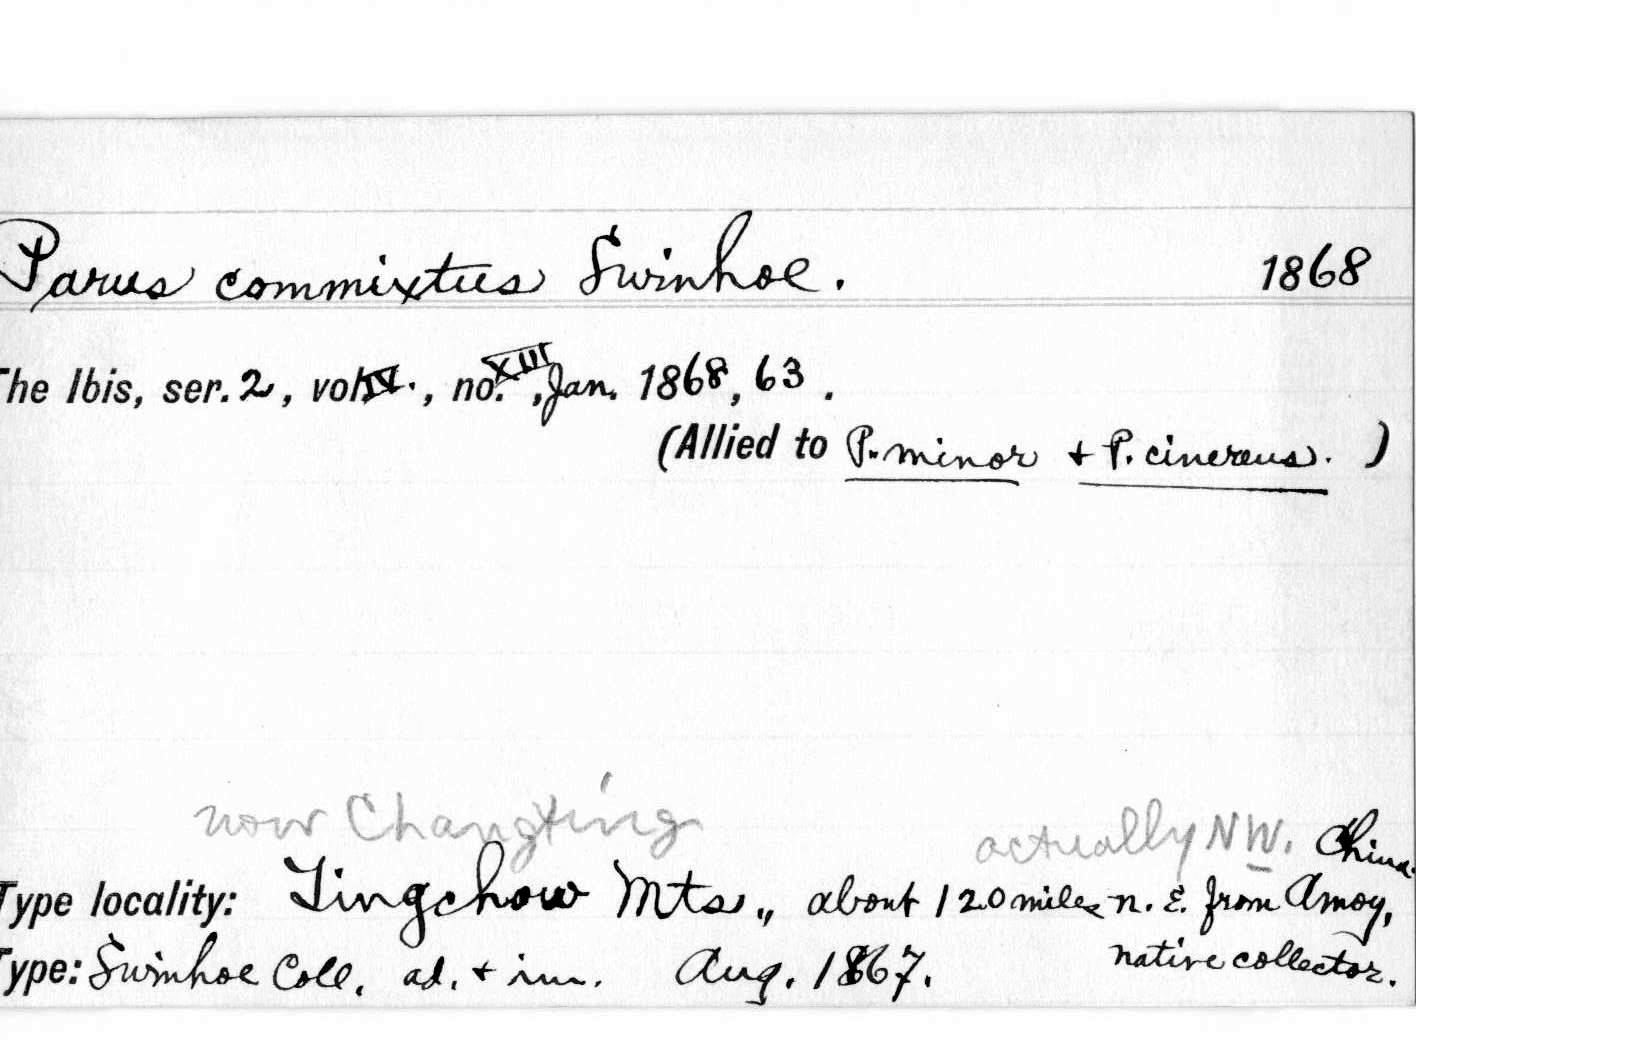 Parus commixtus Swinhoe. 1868
The Ibis, ser. 2, vol. IV., no. XIII, Jan. 1868, 63.
(Allied to P. minor + P. cinereus. )
now Changting actually NW. China.
Type locality: Tingchow Mts., about 120 miles n. E. from Amoy,
native collector.
Type: Swinhoe Coll. ad. + im. Aug. 1867.